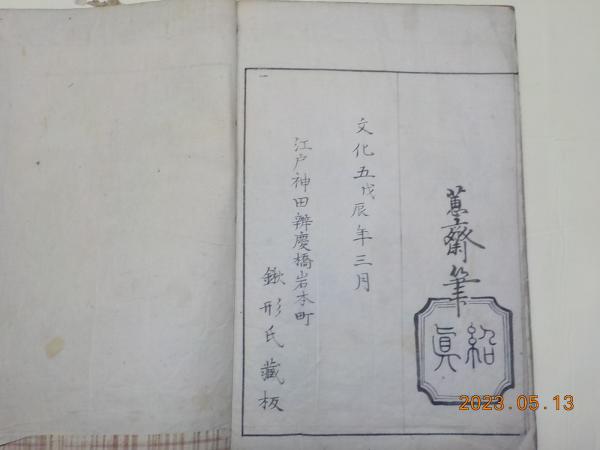 蕙齋筆
紹真
文化五戊辰年三月
江戸神田辨慶橋岩本町
鍬形氏藏板
2023.05.13